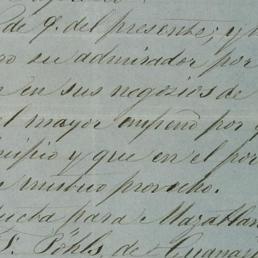 de 9. del presente; y
su admirador por
en sus negozios de
el mayor empeño por
cipio y que en el por
mutuo provecho.
para Mazatlan
F. Pöhls, de